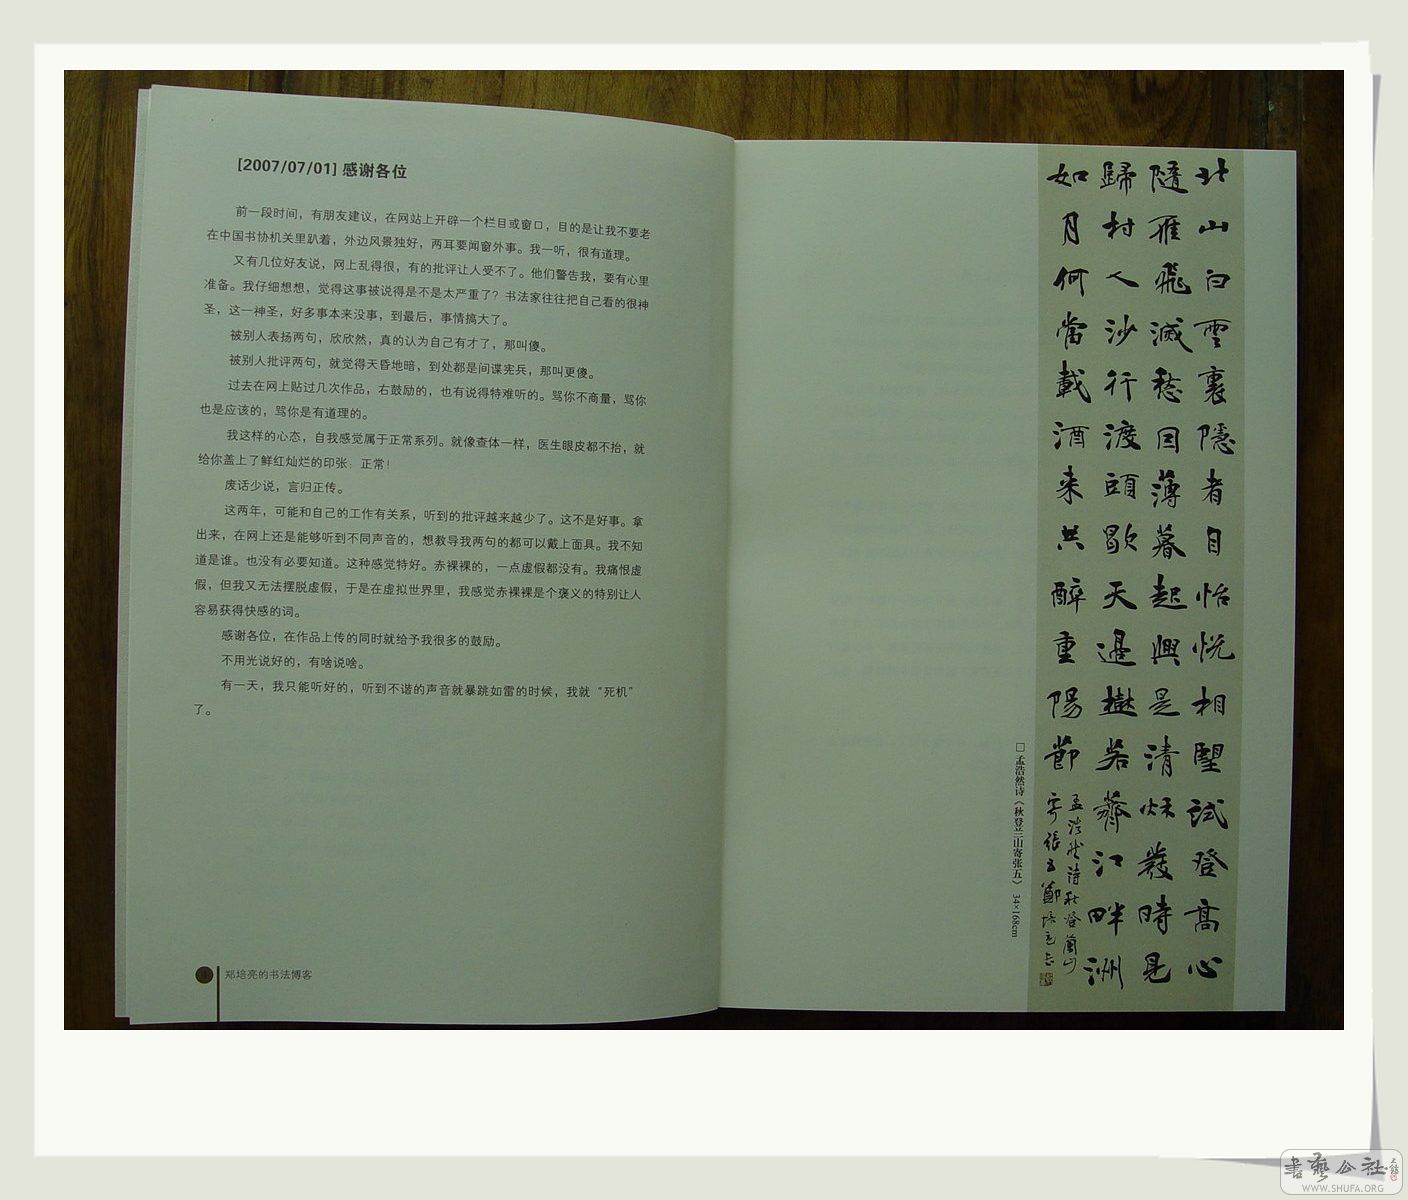 [2007/07/01] 感谢各位
前一段时间，有朋友建议，在网站上开辟一个栏目或窗口，目的是让我不要老
在中国书协机关里趴着，外边风景独好，两耳要闻窗外事。我一听，很有道理。
又有几位好友说，网上乱得很，有的批评让人受不了。他们警告我，要有心里
准备。我仔细想想，觉得这事被说得是不是太严重了？书法家往往把自己看的很神
圣，这一神圣，好多事本来没事，到最后，事情搞大了。
被别人表扬两句，欣欣然，真的认为自己有才了，那叫傻。
被别人批评两句，就觉得天昏地暗，到处都是间谍宪兵，那叫更傻。
过去在网上贴过几次作品，右鼓励的，也有说得特难听的。骂你不商量，骂你
也是应该的，骂你是有道理的。
我这样的心态，自我感觉属于正常系列。就像查体一样，医生眼皮都不抬，就
给你盖上了鲜红灿烂的印张：正常！
废话少说，言归正传。
这两年，可能和自己的工作有关系，听到的批评越来越少了。这不是好事。拿
出来，在网上还是能够听到不同声音的，想教导我两句的都可以戴上面具。我不知
道是谁。也没有必要知道。这种感觉特好。赤裸裸的，一点虚假都没有。我痛恨虚
假，但我又无法摆脱虚假，于是在虚拟世界里，我感觉赤裸裸是个褒义的特别让人
容易获得快感的词。
感谢各位，在作品上传的同时就给予我很多的鼓励。
不用光说好的，有啥说啥。
有一天，我只能听好的，听到不谐的声音就暴跳如雷的时候，我就“死机”
了。
郑培亮的书法博客
北山白雲裏隱者自怡悅相望試登高心
隨雁飛滅愁因薄暮起興是清秋發時見
歸村人沙行渡頭歇天邊樹若薺江畔洲
如月何當載酒來共醉重陽節
孟浩然詩秋登蘭山
寄張五鄭培亮
□ 孟浩然诗《秋登兰山寄张五》 34×168cm
書藝公社
WWW.SHUFA.ORG